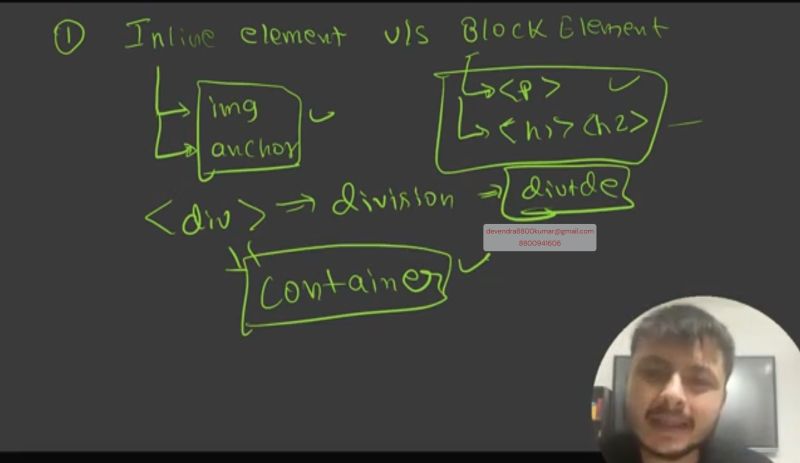 ① Inline element v/s Block Element
img <p>
anchor <h1> <h2>
<div> ⇒ division ⇒ divide
devendra8800kumar@gmail.com
8800941606
Container